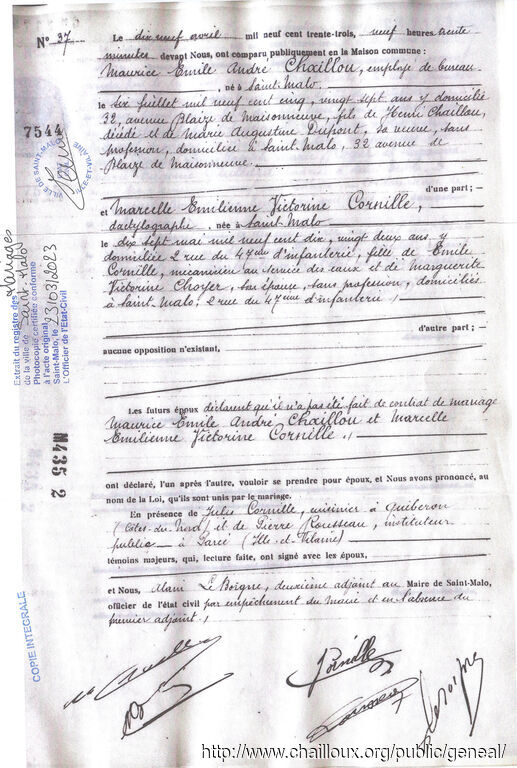 N° 37
Le dix neuf avril mil neuf cent trente-trois, neuf heures trente
minutes devant Nous, ont comparu publiquement en la Maison commune :
Maurice Emile André Chaillou, employé de bureau
, né à Saint-Malo
le six juillet mil neuf cent cinq, vingt sept ans y domicilié
32, avenue Blaize de Maisonneuve, fils de Henri Chaillou,
décédé et de Marie Augustine Dupont, sa veuve, sans
profession, domiciliée à Saint-Malo, 32 avenue de
Blaize de Maisonneuve.
d'une part ; —
et Marcelle Emilienne Victorine Cornille,
dactylographe, née à Saint-Malo
le dix sept mai mil neuf cent dix, vingt deux ans y
domiciliée 2 rue du 47ème d'infanterie, fille de Emile
Cornille, mécanicien au service des eaux et de Marguerite
Victorine Choyer, son épouse, sans profession, domiciliés
à Saint-Malo, 2 rue du 47ème d'infanterie,
d'autre part ; —
aucune opposition n'existant,
Les futurs époux déclarent qu'il n'a pas été fait de contrat de mariage
Maurice Emile André Chaillou et Marcelle
Emilienne Victorine Cornille
ont déclaré, l'un après l'autre, vouloir se prendre pour époux, et Nous avons prononcé, au
nom de la Loi, qu'ils sont unis par le mariage.
En présence de Jules Cornille, cuisinier à Quiberon
(Côtes-du-Nord) et de Pierre Rousseau, instituteur
public à (Ille-et-Vilaine)
témoins majeurs, qui, lecture faite, ont signé avec les époux,
et Nous, Alain Le Borgne, deuxième adjoint au Maire de Saint-Malo,
officier de l'état civil par empêchement du Maire et en l'absence du
premier adjoint
7544
VILLE DE SAINT-MALO
ILLE-ET-VILAINE
Extrait du registre des Mariages
de la ville de Saint Malo
Photocopie certifiée conforme
à l'acte original
Saint-Malo, le 23/03/2023
L'Officier de l'Etat-Civil
M435 2
COPIE INTÉGRALE
http://www.chailloux.org/public/geneal/